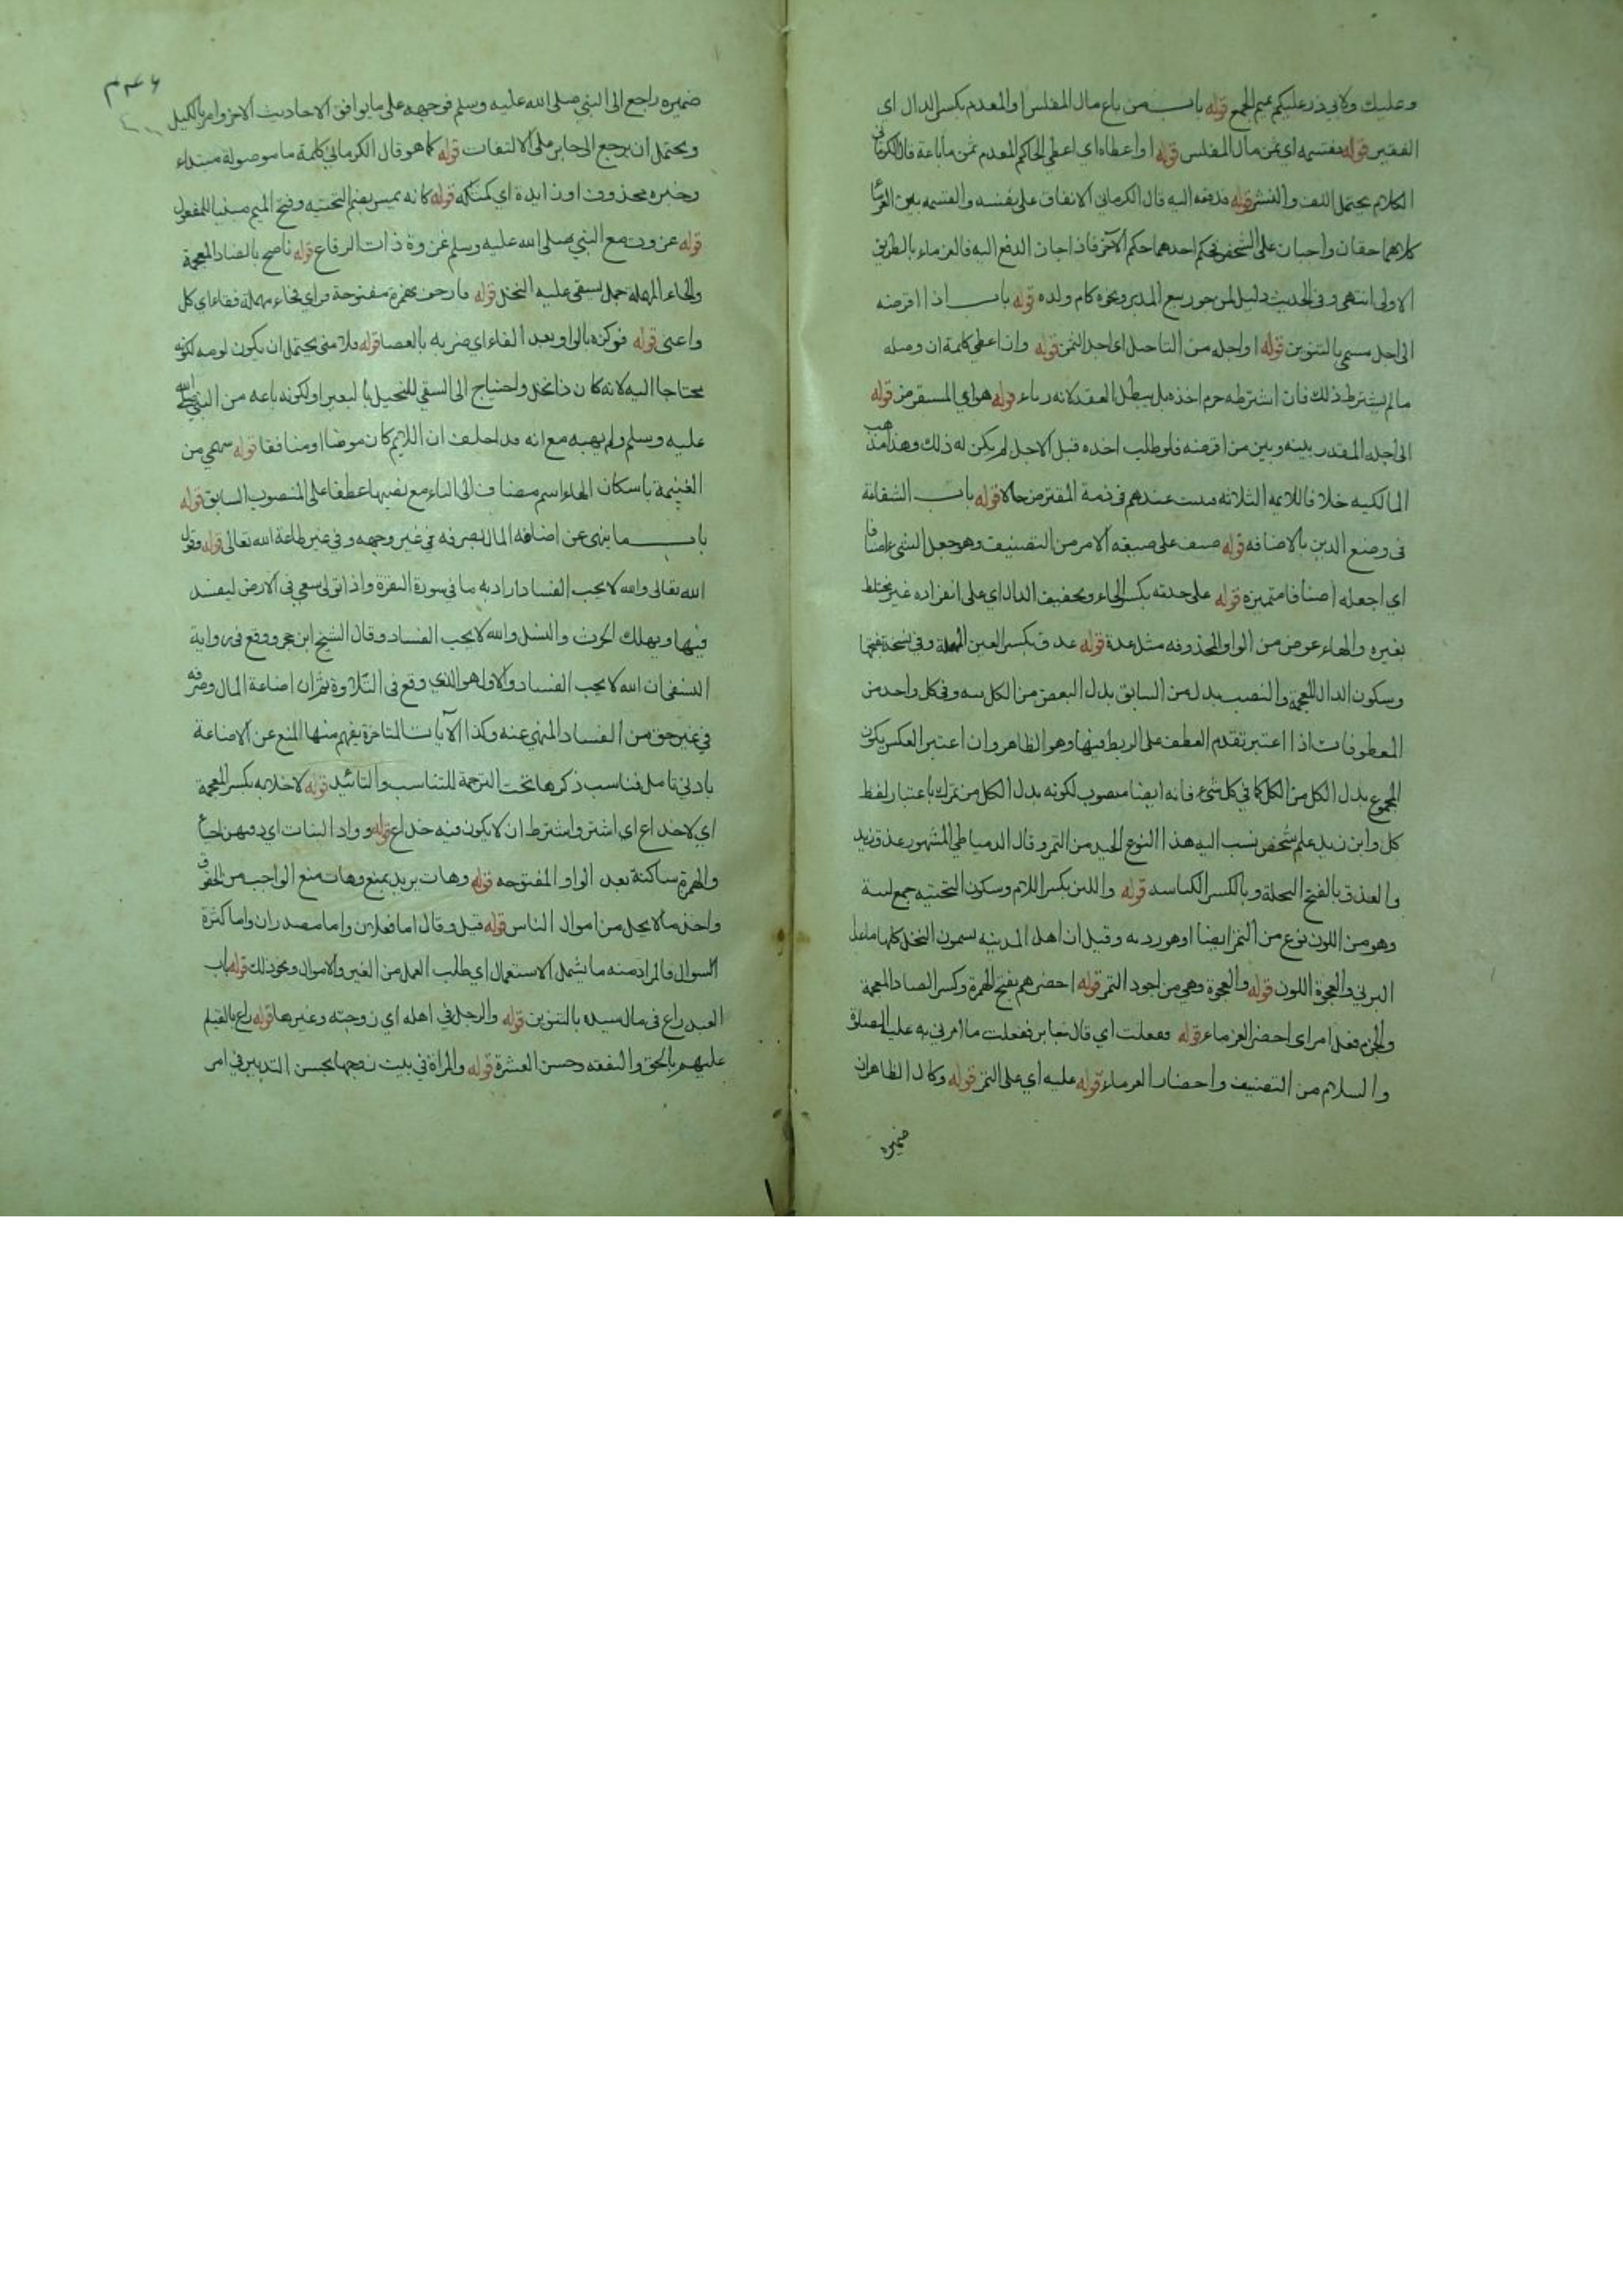 وعليك ولابي ذر عليكم بميم الجمع قوله باب من باع مال المفلس او المعدم بكسر الدال اي
الفقير قوله فقسمه اي ثمن مال المفلس قوله او اعطاه اي اعطى الحاكم المعدم ثمن ما باعه قال الكرماني
الكلام يحتمل اللف والنشر قوله فدفعه اليه قال الكرماني الانفاق على نفسه والقسمة بين الغرماء
كلاهما حقان واجبان على الشخص فحكم احدهما حكم الآخر فاذا جاز الدفع اليه فالغرماء بالطريق
الاولى انتهى وفي الحديث دليل لمن جوز بيع المدبر ونحوه كام ولده قوله باب اذا اقرضه
الى اجل مسمى بالتنوين قوله او اجله من التاجيل اي اجل الثمن قوله وان اعطي كلمة ان وصله
مالم يشترط ذلك فان اشترطه حرم اخذه بل يبطل العقد لانه رباء قوله هو اي المستقرض قوله
الى اجله المقدر بينه وبين من اقرضه فلو طلب اخذه قبل الاجل لم يكن له ذلك وهذا مذهب
المالكية خلافا للايمة الثلاثة فيثبت عندهم في ذمة المقترض حالا قوله باب الشفاعة
في وضع الدين بالاضافه قوله صنف على صيغه الامر من التصنيف وهو جعل الشيء اصنافا
اي اجعله اصنافا متميزه قوله على حدته بكسر الحاء وتخفيف الدال اي على انفراده غير مختلط
بغيره والهاء عوض من الواو المحذوفه مثل عدة قوله عذق بكسر العين المهملة وفي نسخة بفتحها
وسكون الدال المعجمة والنصب بدل من السابق بدل البعض من الكل وفي كل واحد من
المعطوفات اذا اعتبر تقدم العطف على الربط فيها وهو الظاهر وان اعتبر العكس يكون
المجموع بدل الكل من الكل كما في كل شيء فانه ايضا منصوب لكونه بدل الكل من تمرك باعتبار لفظ
كل وابن زيد علم شخص نسب اليه هذا النوع الجيد من التمر وقال الدمياطي المشهور عذق زيد
والعذق بالفتح النخلة وبالكسر الكباسه قوله واللين بكسر اللام وسكون التحتيه جمع لينة
وهو من اللون نوع من التمر ايضا او هو رديه وقيل ان اهل المدينه يسمون النخل كلها ما عدا
البرني والعجوة اللون قوله والعجوة وهي من اجود التمر قوله احضرهم بفتح الهمزة وكسر الضاد المعجمة
والجزم فعل امر اي احضر الغرماء قوله ففعلت اي قال جابر ففعلت ما امرني به عليه الصلاة
والسلام من التصنيف واحضار الغرماء قوله عليه اي على التمر قوله وكال الظاهر ان
ضميره
ضميره راجع الى النبي صلى الله عليه وسلم فوجهه على ما يوافق الاحاديث الاخر وامر بالكيل
ويحتمل ان يرجع الى جابر على الالتفات قوله كما هو قال الكرماني كلمة ما موصولة مبتداء
وخبره محذوف او زايدة اي كمثله قوله كانه لم يمس بضم التحتيه وفتح الميم مبنيا للمفعول
قوله غزوت مع النبي صلى الله عليه وسلم غزوة ذات الرقاع قوله ناضح بالضاد المعجمة
والحاء المهملة جمل يسقى عليه النخل قوله فازحف بهمزة مفتوحة فزاي فحاء مهملة ففاء اي كل
واعي قوله فوكزه بالواو بعد الفاء اي ضربه بالعصا قوله فلامني يحتمل ان يكون لومه لكونه
محتاجا اليه لانه كان ذا نخل واحتياج الى السقي للنخيل بالبعير او لكونه باعه من النبي صلى الله
عليه وسلم ولم يهبه مع انه قد اختلف ان اللايم كان مومنا او منافقا قوله سهمي من
الغنيمة باسكان الهاء اسم مضاف الى الياء مع نصبها عطفا على المنصوب السابق قوله
باب ما ينهى عن اضاعه المال بصرفه في غير وجهه وفي غير طاعة الله تعالى قوله وقول
الله تعالى والله لا يحب الفساد اراد به ما في سورة البقرة واذا تولى سعى في الارض ليفسد
فيها ويهلك الحرث والنسل والله لا يحب الفساد وقال الشيخ ابن حجر ووقع في رواية
النسفي ان الله لا يحب الفساد والاول هو الذي وقع في التلاوة ثم ان اضاعة المال وصرفه
في غير حق من الفساد المنهي عنه وكذا الآيات المتاخرة يفهم منها المنع عن الاضاعة
بادني تامل فناسب ذكرها تحت الترجمة للتناسب والتائيد قوله لا خلابه بكسر المعجمة
اي لا خداع اي اشتر واشترط ان لا يكون فيه خداع قوله وواد البنات اي دفنهن احياء
والهمزة ساكنة بعد الواو المفتوحه قوله وهات يريد بمنع وهات منع الواجب من الحقوق
واخذ مالا يحل من اموال الناس قوله قيل وقال اما فعلان واما مصدران واما كثرة
السوال فالمراد منه ما يشمل الاستعمال اي طلب العمل من الغير والاموال ونحو ذلك قوله باب
العبد راع في مال سيده بالتنوين قوله والرجل في اهله اي زوجته وغيرها قوله راع بالقيام
عليهم بالحق والنفقه وحسن العشرة قوله والمراة في بيت زوجها بحسن التدبير في امر